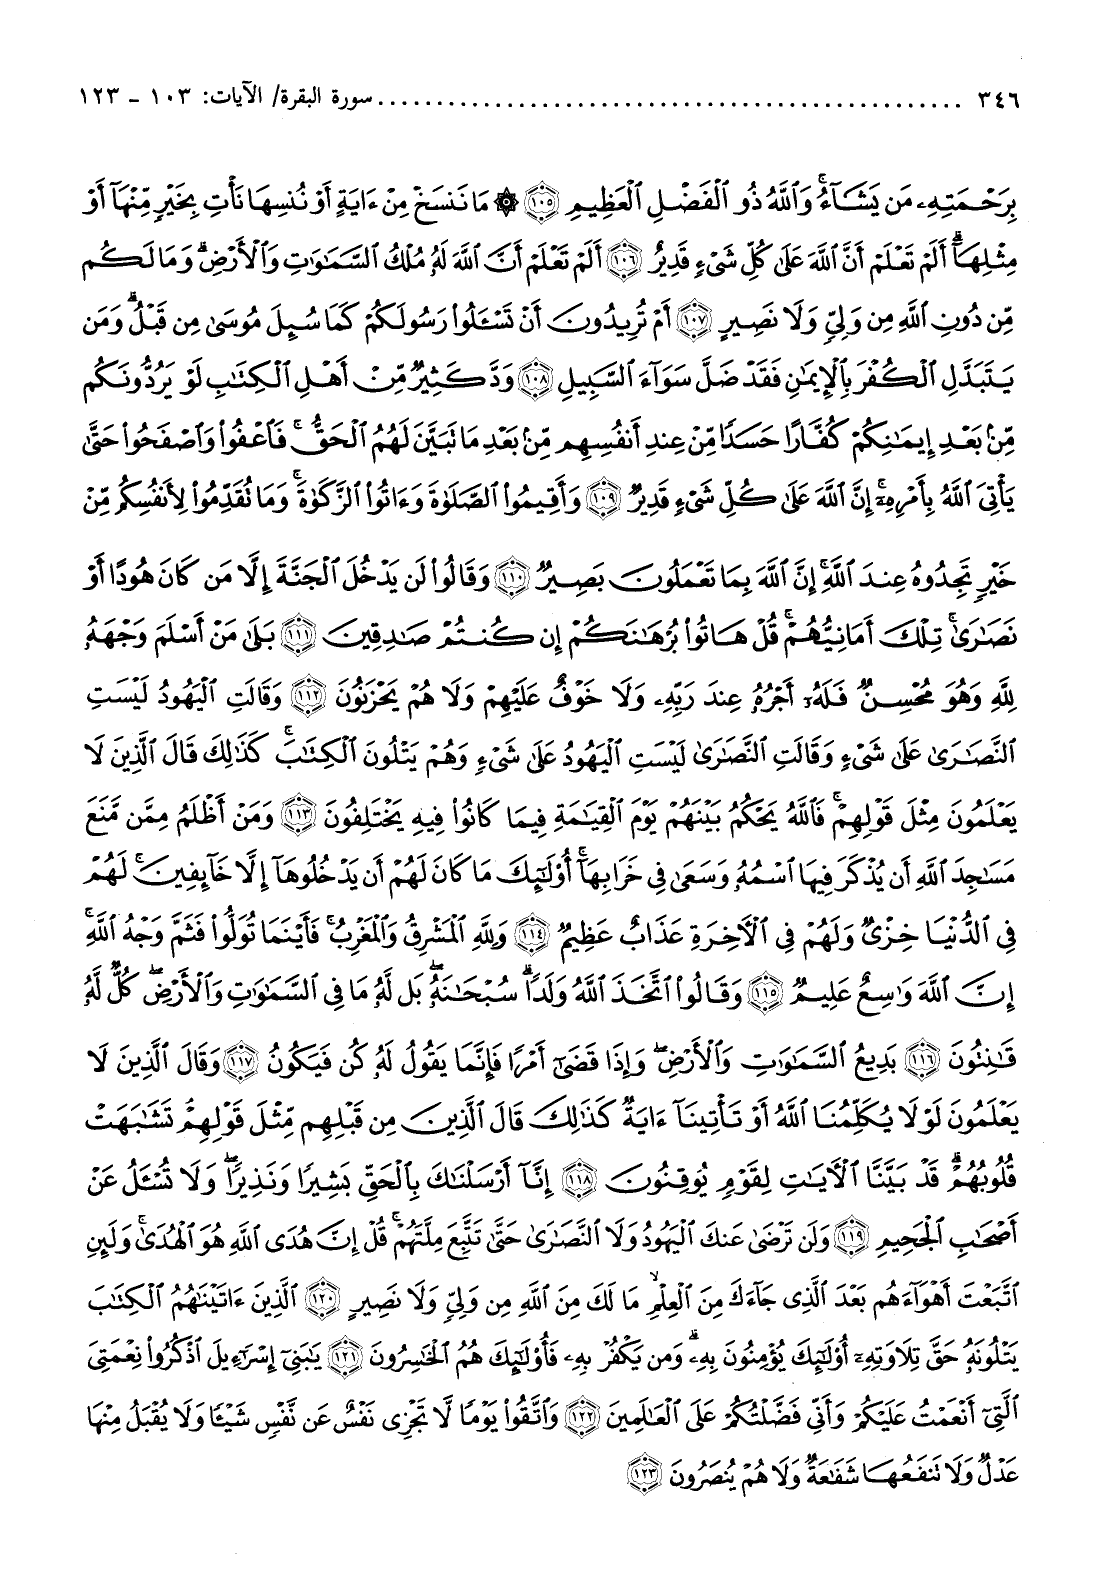 ٣٤٦ .................................................. سورة البقرة/ الآيات: ١٠٣ - ١٢٣
بِرَحْمَتِهِۦ مَن يَشَآءُۚ وَٱللَّهُ ذُو ٱلْفَضْلِ ٱلْعَظِيمِ ﴿١٠٥﴾ ۞ مَا نَنسَخْ مِنْ ءَايَةٍ أَوْ نُنسِهَا نَأْتِ بِخَيْرٍ مِّنْهَآ أَوْ
مِثْلِهَآۗ أَلَمْ تَعْلَمْ أَنَّ ٱللَّهَ عَلَىٰ كُلِّ شَىْءٍ قَدِيرٌ ﴿١٠٦﴾ أَلَمْ تَعْلَمْ أَنَّ ٱللَّهَ لَهُۥ مُلْكُ ٱلسَّمَٰوَٰتِ وَٱلْأَرْضِۗ وَمَا لَكُم
مِّن دُونِ ٱللَّهِ مِن وَلِىٍّ وَلَا نَصِيرٍ ﴿١٠٧﴾ أَمْ تُرِيدُونَ أَن تَسْـَٔلُوا۟ رَسُولَكُمْ كَمَا سُئِلَ مُوسَىٰ مِن قَبْلُۗ وَمَن
يَتَبَدَّلِ ٱلْكُفْرَ بِٱلْإِيمَٰنِ فَقَدْ ضَلَّ سَوَآءَ ٱلسَّبِيلِ ﴿١٠٨﴾ وَدَّ كَثِيرٌ مِّنْ أَهْلِ ٱلْكِتَٰبِ لَوْ يَرُدُّونَكُم
مِّنۢ بَعْدِ إِيمَٰنِكُمْ كُفَّارًا حَسَدًا مِّنْ عِندِ أَنفُسِهِم مِّنۢ بَعْدِ مَا تَبَيَّنَ لَهُمُ ٱلْحَقُّۖ فَٱعْفُوا۟ وَٱصْفَحُوا۟ حَتَّىٰ
يَأْتِىَ ٱللَّهُ بِأَمْرِهِۦٓۗ إِنَّ ٱللَّهَ عَلَىٰ كُلِّ شَىْءٍ قَدِيرٌ ﴿١٠٩﴾ وَأَقِيمُوا۟ ٱلصَّلَوٰةَ وَءَاتُوا۟ ٱلزَّكَوٰةَۚ وَمَا تُقَدِّمُوا۟ لِأَنفُسِكُم مِّنْ
خَيْرٍ تَجِدُوهُ عِندَ ٱللَّهِۗ إِنَّ ٱللَّهَ بِمَا تَعْمَلُونَ بَصِيرٌ ﴿١١٠﴾ وَقَالُوا۟ لَن يَدْخُلَ ٱلْجَنَّةَ إِلَّا مَن كَانَ هُودًا أَوْ
نَصَٰرَىٰۗ تِلْكَ أَمَانِيُّهُمْۗ قُلْ هَاتُوا۟ بُرْهَٰنَكُمْ إِن كُنتُمْ صَٰدِقِينَ ﴿١١١﴾ بَلَىٰ مَنْ أَسْلَمَ وَجْهَهُۥ
لِلَّهِ وَهُوَ مُحْسِنٌ فَلَهُۥٓ أَجْرُهُۥ عِندَ رَبِّهِۦ وَلَا خَوْفٌ عَلَيْهِمْ وَلَا هُمْ يَحْزَنُونَ ﴿١١٢﴾ وَقَالَتِ ٱلْيَهُودُ لَيْسَتِ
ٱلنَّصَٰرَىٰ عَلَىٰ شَىْءٍ وَقَالَتِ ٱلنَّصَٰرَىٰ لَيْسَتِ ٱلْيَهُودُ عَلَىٰ شَىْءٍ وَهُمْ يَتْلُونَ ٱلْكِتَٰبَۗ كَذَٰلِكَ قَالَ ٱلَّذِينَ لَا
يَعْلَمُونَ مِثْلَ قَوْلِهِمْۚ فَٱللَّهُ يَحْكُمُ بَيْنَهُمْ يَوْمَ ٱلْقِيَٰمَةِ فِيمَا كَانُوا۟ فِيهِ يَخْتَلِفُونَ ﴿١١٣﴾ وَمَنْ أَظْلَمُ مِمَّن مَّنَعَ
مَسَٰجِدَ ٱللَّهِ أَن يُذْكَرَ فِيهَا ٱسْمُهُۥ وَسَعَىٰ فِى خَرَابِهَآۚ أُو۟لَٰٓئِكَ مَا كَانَ لَهُمْ أَن يَدْخُلُوهَآ إِلَّا خَآئِفِينَۚ لَهُمْ
فِى ٱلدُّنْيَا خِزْىٌ وَلَهُمْ فِى ٱلْءَاخِرَةِ عَذَابٌ عَظِيمٌ ﴿١١٤﴾ وَلِلَّهِ ٱلْمَشْرِقُ وَٱلْمَغْرِبُۚ فَأَيْنَمَا تُوَلُّوا۟ فَثَمَّ وَجْهُ ٱللَّهِۚ
إِنَّ ٱللَّهَ وَٰسِعٌ عَلِيمٌ ﴿١١٥﴾ وَقَالُوا۟ ٱتَّخَذَ ٱللَّهُ وَلَدًاۗ سُبْحَٰنَهُۥۖ بَل لَّهُۥ مَا فِى ٱلسَّمَٰوَٰتِ وَٱلْأَرْضِۖ كُلٌّ لَّهُۥ
قَٰنِتُونَ ﴿١١٦﴾ بَدِيعُ ٱلسَّمَٰوَٰتِ وَٱلْأَرْضِۖ وَإِذَا قَضَىٰٓ أَمْرًا فَإِنَّمَا يَقُولُ لَهُۥ كُن فَيَكُونُ ﴿١١٧﴾ وَقَالَ ٱلَّذِينَ لَا
يَعْلَمُونَ لَوْلَا يُكَلِّمُنَا ٱللَّهُ أَوْ تَأْتِينَآ ءَايَةٌۗ كَذَٰلِكَ قَالَ ٱلَّذِينَ مِن قَبْلِهِم مِّثْلَ قَوْلِهِمْۘ تَشَٰبَهَتْ
قُلُوبُهُمْۗ قَدْ بَيَّنَّا ٱلْءَايَٰتِ لِقَوْمٍ يُوقِنُونَ ﴿١١٨﴾ إِنَّآ أَرْسَلْنَٰكَ بِٱلْحَقِّ بَشِيرًا وَنَذِيرًاۖ وَلَا تُسْـَٔلُ عَنْ
أَصْحَٰبِ ٱلْجَحِيمِ ﴿١١٩﴾ وَلَن تَرْضَىٰ عَنكَ ٱلْيَهُودُ وَلَا ٱلنَّصَٰرَىٰ حَتَّىٰ تَتَّبِعَ مِلَّتَهُمْۗ قُلْ إِنَّ هُدَى ٱللَّهِ هُوَ ٱلْهُدَىٰۗ وَلَئِنِ
ٱتَّبَعْتَ أَهْوَآءَهُم بَعْدَ ٱلَّذِى جَآءَكَ مِنَ ٱلْعِلْمِۙ مَا لَكَ مِنَ ٱللَّهِ مِن وَلِىٍّ وَلَا نَصِيرٍ ﴿١٢٠﴾ ٱلَّذِينَ ءَاتَيْنَٰهُمُ ٱلْكِتَٰبَ
يَتْلُونَهُۥ حَقَّ تِلَاوَتِهِۦٓ أُو۟لَٰٓئِكَ يُؤْمِنُونَ بِهِۦۗ وَمَن يَكْفُرْ بِهِۦ فَأُو۟لَٰٓئِكَ هُمُ ٱلْخَٰسِرُونَ ﴿١٢١﴾ يَٰبَنِىٓ إِسْرَٰٓءِيلَ ٱذْكُرُوا۟ نِعْمَتِىَ
ٱلَّتِىٓ أَنْعَمْتُ عَلَيْكُمْ وَأَنِّى فَضَّلْتُكُمْ عَلَى ٱلْعَٰلَمِينَ ﴿١٢٢﴾ وَٱتَّقُوا۟ يَوْمًا لَّا تَجْزِى نَفْسٌ عَن نَّفْسٍ شَيْـًٔا وَلَا يُقْبَلُ مِنْهَا
عَدْلٌ وَلَا تَنفَعُهَا شَفَٰعَةٌ وَلَا هُمْ يُنصَرُونَ ﴿١٢٣﴾